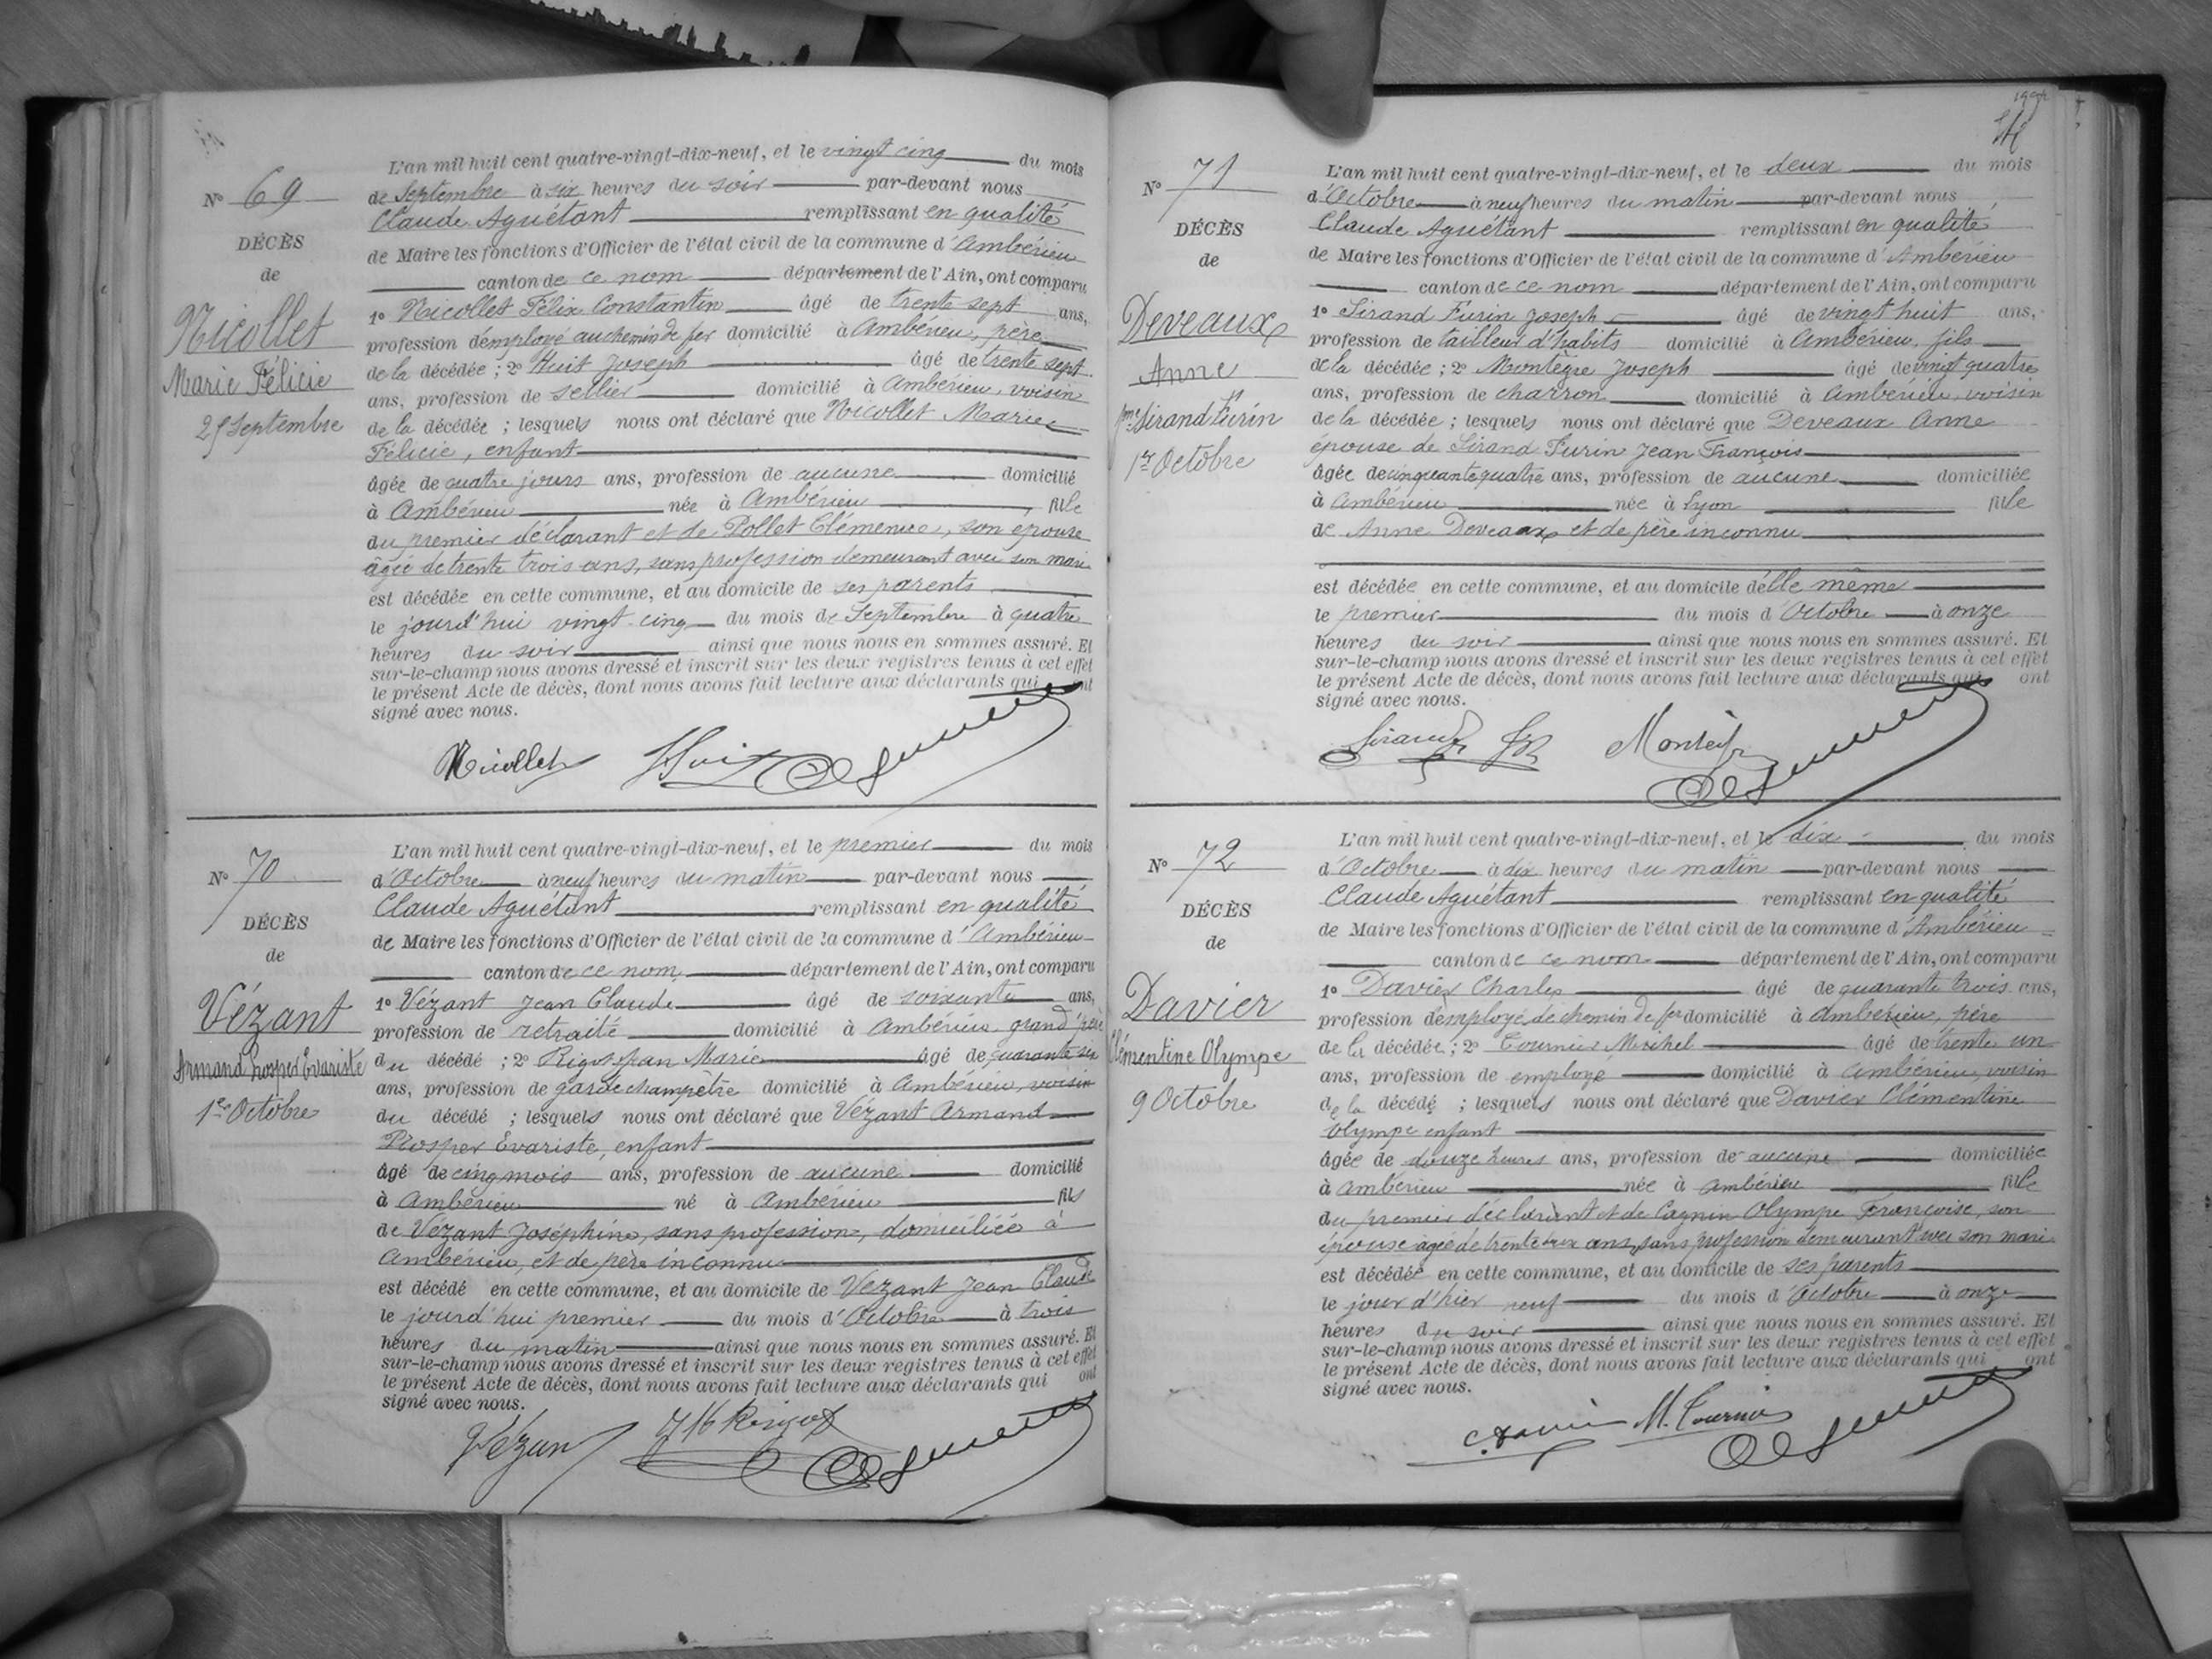 L'an mil huit cent quatre-vingt-dix-neuf, et le vingt cinq du mois
de Septembre à six heures du soir par-devant nous
Claude Aguétant remplissant en qualité
de Maire les fonctions d'Officier de l'état civil de la commune d'Ambérieu
canton de ce nom département de l'Ain, ont comparu
1º Nicollet Félix Constantin âgé de trente sept ans,
profession d'employé au chemin de fer domicilié à Ambérieu, père
de la décédée ; 2º Huit Joseph âgé de trente sept
ans, profession de sellier domicilié à Ambérieu, voisin
de la décédée ; lesquels nous ont déclaré que Nicollet Marie
Félicie, enfant
âgée de quatre jours ans, profession de aucune domicilié
à Ambérieu née à Ambérieu fille
du premier déclarant et de Pollet Clémence, son épouse
âgée de trente trois ans, sans profession demeurant avec son mari
est décédée en cette commune, et au domicile de ses parents
le jourd'hui vingt cinq du mois de Septembre à quatre
heures du soir ainsi que nous nous en sommes assuré. Et
sur-le-champ nous avons dressé et inscrit sur les deux registres tenus à cet effet
le présent Acte de décès, dont nous avons fait lecture aux déclarants qui ont
signé avec nous.
Nicollet Huit
Nº 69
DÉCÈS
de
Nicollet
Marie Félicie
25 Septembre
L'an mil huit cent quatre-vingt-dix-neuf, et le premier du mois
d'Octobre à neuf heures du matin par-devant nous
Claude Aguétant remplissant en qualité
de Maire les fonctions d'Officier de l'état civil de la commune d'Ambérieu
canton de ce nom département de l'Ain, ont comparu
1º Vézant Jean Claude âgé de soixante ans,
profession de retraité domicilié à Ambérieu grand'père
du décédé ; 2º Rigot Jean Marie âgé de quarante six
ans, profession de garde champêtre domicilié à Ambérieu, voisin
du décédé ; lesquels nous ont déclaré que Vézant Armand
Prosper Evariste, enfant
âgé de cinq mois ans, profession de aucune domicilié
à Ambérieu né à Ambérieu fils
de Vézant Joséphine, sans profession, domiciliée à
Ambérieu, et de père inconnu
est décédé en cette commune, et au domicile de Vézant Jean Claude
le jourd'hui premier du mois d'Octobre à trois
heures du matin ainsi que nous nous en sommes assuré. Et
sur-le-champ nous avons dressé et inscrit sur les deux registres tenus à cet effet
le présent Acte de décès, dont nous avons fait lecture aux déclarants qui ont
signé avec nous.
Vézant
Nº 70
DÉCÈS
de
Vézant
Armand Prosper Evariste
1er Octobre
L'an mil huit cent quatre-vingt-dix-neuf, et le deux du mois
d'Octobre à neuf heures du matin par-devant nous
Claude Aguétant remplissant en qualité
de Maire les fonctions d'Officier de l'état civil de la commune d'Ambérieu
canton de ce nom département de l'Ain, ont comparu
1º Sirand Furin Joseph âgé de vingt huit ans,
profession de tailleur d'habits domicilié à Ambérieu, fils
de la décédée ; 2º Montègre Joseph âgé de vingt quatre
ans, profession de charron domicilié à Ambérieu, voisin
de la décédée ; lesquels nous ont déclaré que Deveaux Anne
épouse de Sirand Furin Jean François
âgée de cinquante quatre ans, profession de aucune domiciliée
à Ambérieu née à Lyon fille
de Anne Deveaux et de père inconnu
est décédée en cette commune, et au domicile d'elle même
le premier du mois d'Octobre à onze
heures du soir ainsi que nous nous en sommes assuré. Et
sur-le-champ nous avons dressé et inscrit sur les deux registres tenus à cet effet
le présent Acte de décès, dont nous avons fait lecture aux déclarants qui ont
signé avec nous.
Sirand
Nº 71
DÉCÈS
de
Deveaux
Anne
fme Sirand Furin
1er Octobre
L'an mil huit cent quatre-vingt-dix-neuf, et le dix du mois
d'Octobre à dix heures du matin par-devant nous
Claude Aguétant remplissant en qualité
de Maire les fonctions d'Officier de l'état civil de la commune d'Ambérieu
canton de ce nom département de l'Ain, ont comparu
1º Davier Charles âgé de quarante trois ans,
profession d'employé de chemin de fer domicilié à Ambérieu, père
de la décédée ; 2º Tournier Michel âgé de trente un
ans, profession de employé domicilié à Ambérieu, voisin
de la décédé ; lesquels nous ont déclaré que Davier Clémentine
Olympe enfant
âgée de douze heures ans, profession de aucune domiciliée
à Ambérieu née à Ambérieu fille
du premier déclarant et de Cagnin Olympe Françoise, son
épouse agée de trente ans, sans profession demeurant avec son mari
est décédée en cette commune, et au domicile de ses parents
le jour d'hier neuf du mois d'Octobre à onze
heures du soir ainsi que nous nous en sommes assuré. Et
sur-le-champ nous avons dressé et inscrit sur les deux registres tenus à cet effet
le présent Acte de décès, dont nous avons fait lecture aux déclarants qui ont
signé avec nous.
C. Davier M. Tournier
Nº 72
DÉCÈS
de
Davier
Clémentine Olympe
9 Octobre